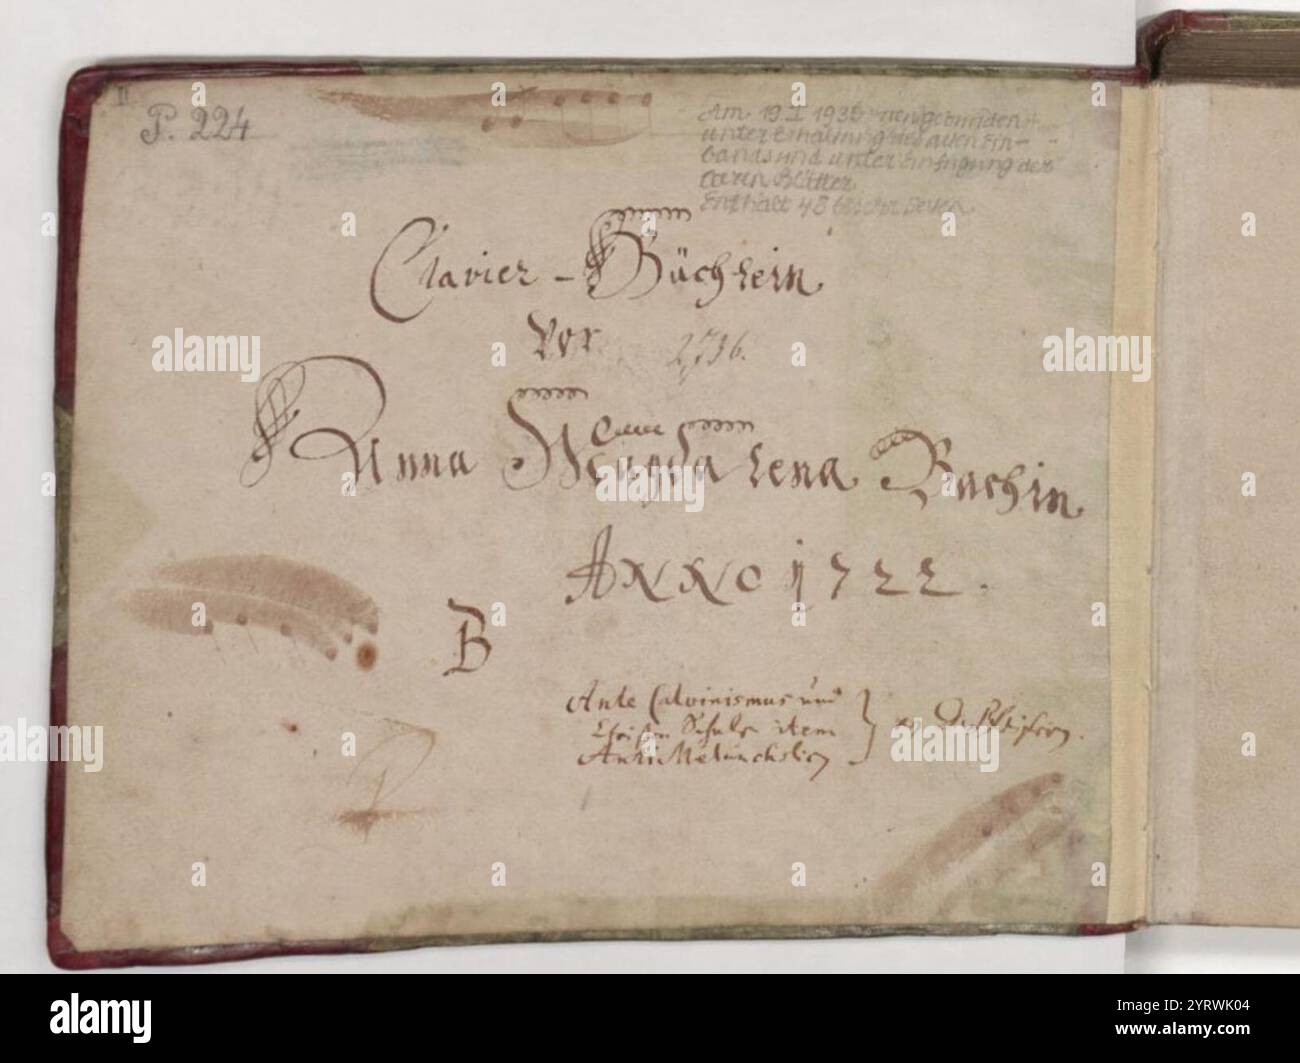 P. 224
Am 19.I 1935 neugebunden
unter Erhaltung des alten Ein-
bands und unter Einfügung der
leeren Blätter
Enthält 48 beschr. Seiten
Clavier-Büchlein
vor
Anna Magdalena Bachin
ANNO 1722.
B
Ante Calvinismus und
Christen Schule item
Anti Melancholicus
alamy
Image ID: 2YRWK04
www.alamy.com